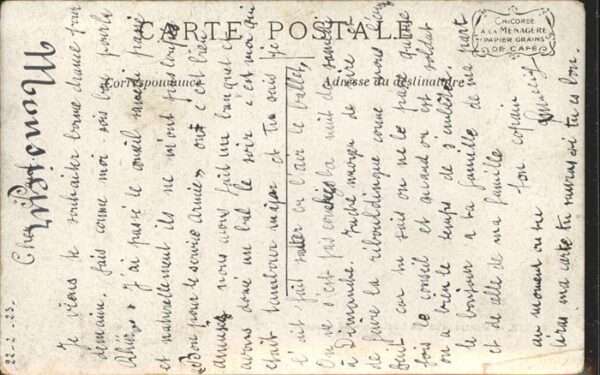 CARTE POSTALE
Correspondance
Adresse du destinataire
CHICORÉE
A LA MÉNAGÈRE
PAPIER GRAINS
DE CAFÉ
22-2-23.
Cher
Je viens te souhaiter bonne chance pour
demain. fais comme moi sois bon pour la
J'ai passé le conseil samedi passé
et naturellement ils ne m'ont pas loupé
Bon pour le service Armée» ont c'est bien
amusés nous avons fait un banquet et
avons donné un bal le soir c'est moi qui
était tambour major et tu sais je
l'ait fait sauter en l'air le ballet,
On ne s'est pas couchés la nuit de samedi
à Dimanche. Tache moyen de
de faire la ribouldingue comme nous
tout car tu sais on ne le passe qu'une
fois le conseil et quand on est soldat
on a bien le temps de s'embêter.
le bonjour a ta famille de ma part
et de celle de ma famille
ton copain
au moment ou tu
uras ma carte tu ou tu es bon.